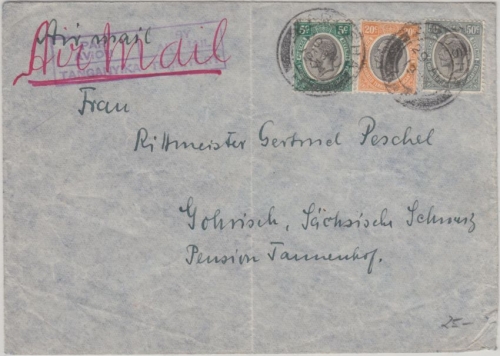 Air mail
Air Mail
PAR AVION
TANGANYIKA
5c 5c
20c
50c
Frau
Rittmeister Gertrud Peschel
Gohrisch, Sächsische Schweiz
Pension Tannenhof.
25-